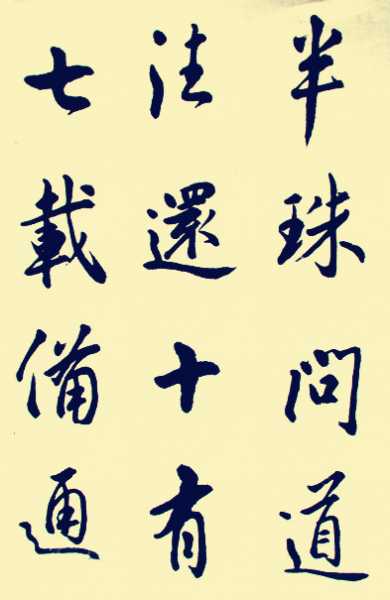 半珠問道
往還十有
七載備通